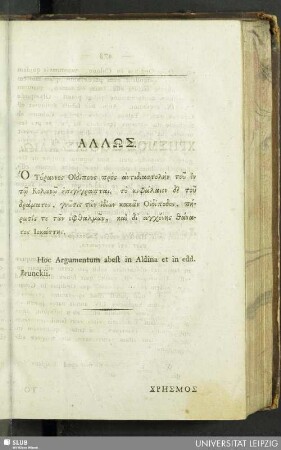 ΑΛΛΩΣ
Ὁ Τύραννος Οἰδίπους πρὸς ἀντιδιαστολὴν τοῦ ἐν
τῷ Κολωνῷ ἐπιγέγραπται. τὸ κεφάλαιον δὲ τοῦ
δράματος, γνῶσις τῶν ἰδίων κακῶν Οἰδίποδος, πή-
ρωσίς τε τῶν ὀφθαλμῶν, καὶ δι' ἀγχόνης θάνα-
τος Ἰοκάστης.
Hoc Argumentum abest in Aldina et in edd.
Brunckii.
ΧΡΗΣΜΟΣ
SLUB
UNIVERSITÄT LEIPZIG